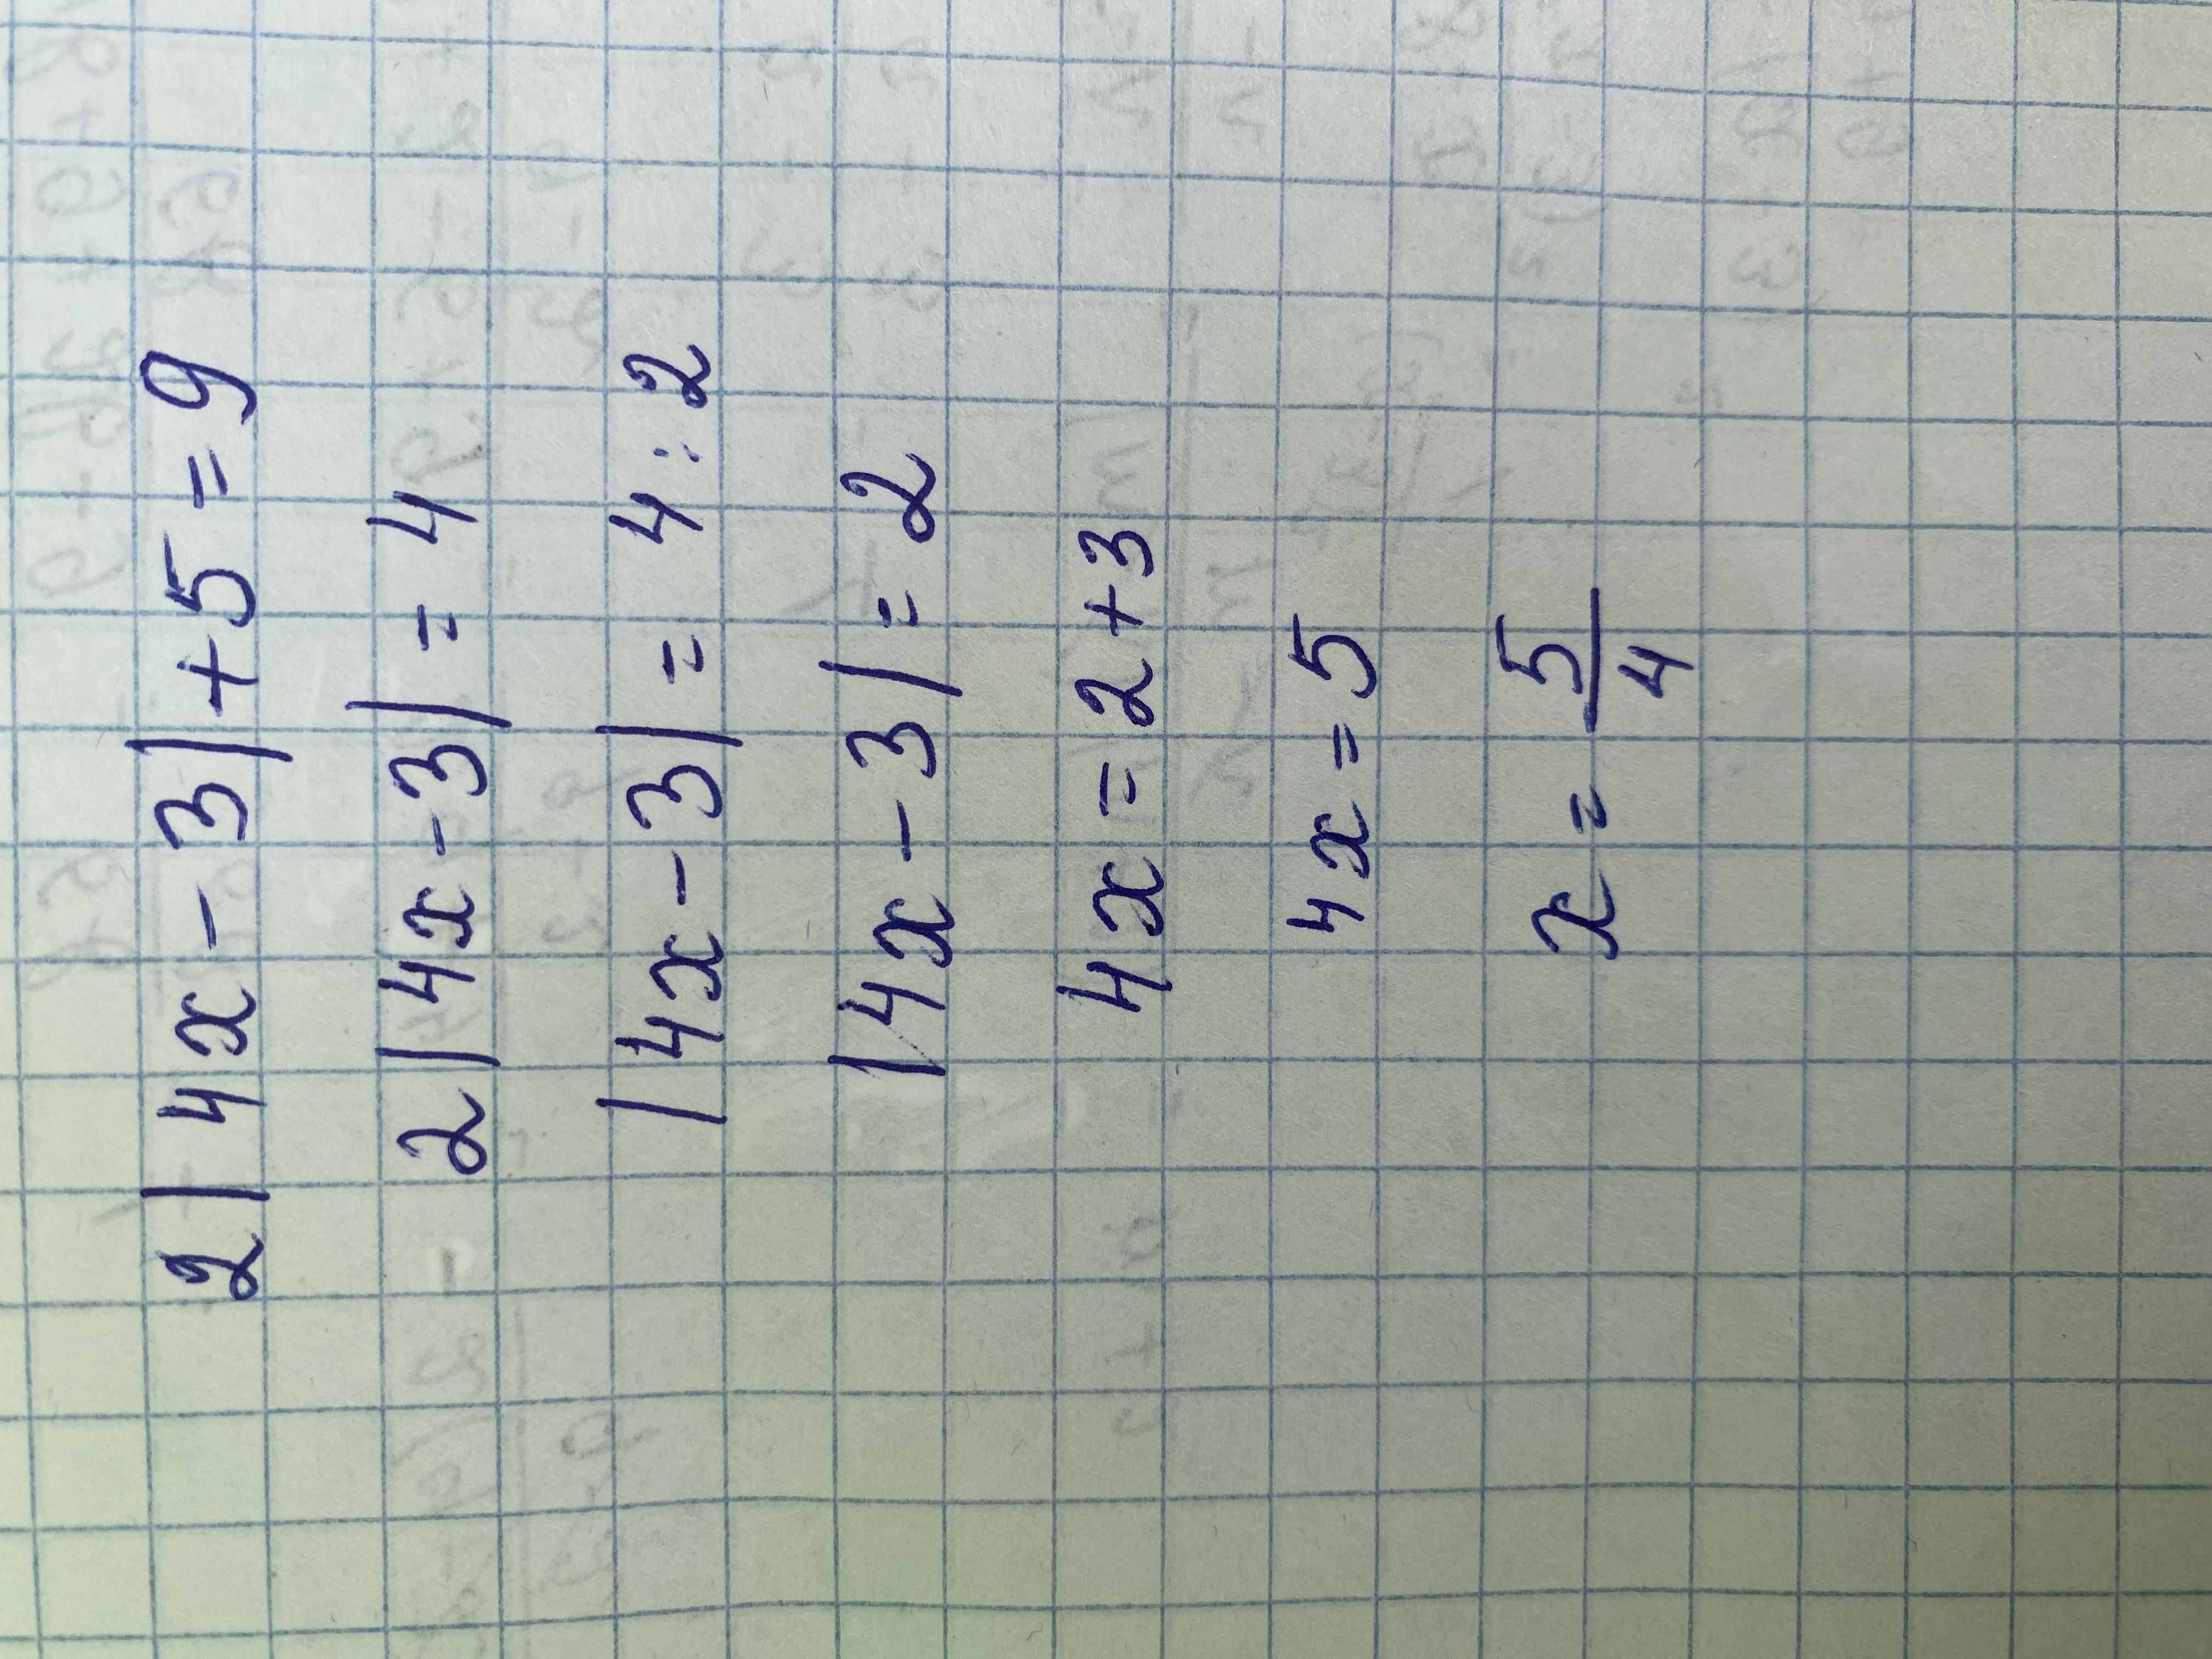 2|4x-3|+5=9
2|4x-3|=4
|4x-3|=4:2
|4x-3|=2
4x=2+3
4x=5
x=5/4